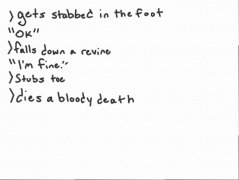 >gets stabbed in the foot
"OK"
>falls down a revine
"I'm fine."
>Stubs toe
>dies a bloody death